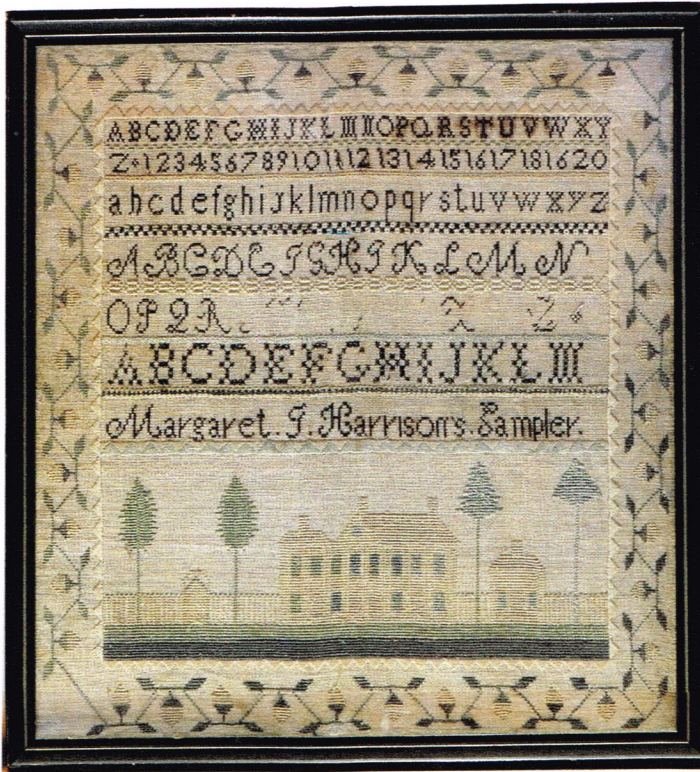 ABCDEFGHIJKLMNOPQRSTUVWXY
Z 1234567891011121314151617181620
abcdefghijklmnopqrstuvwxyz
ABCDEFGHIJKLMN
OPQR X Z
ABCDEFGHIJKLM
Margaret. J. Harrison's. Sampler.